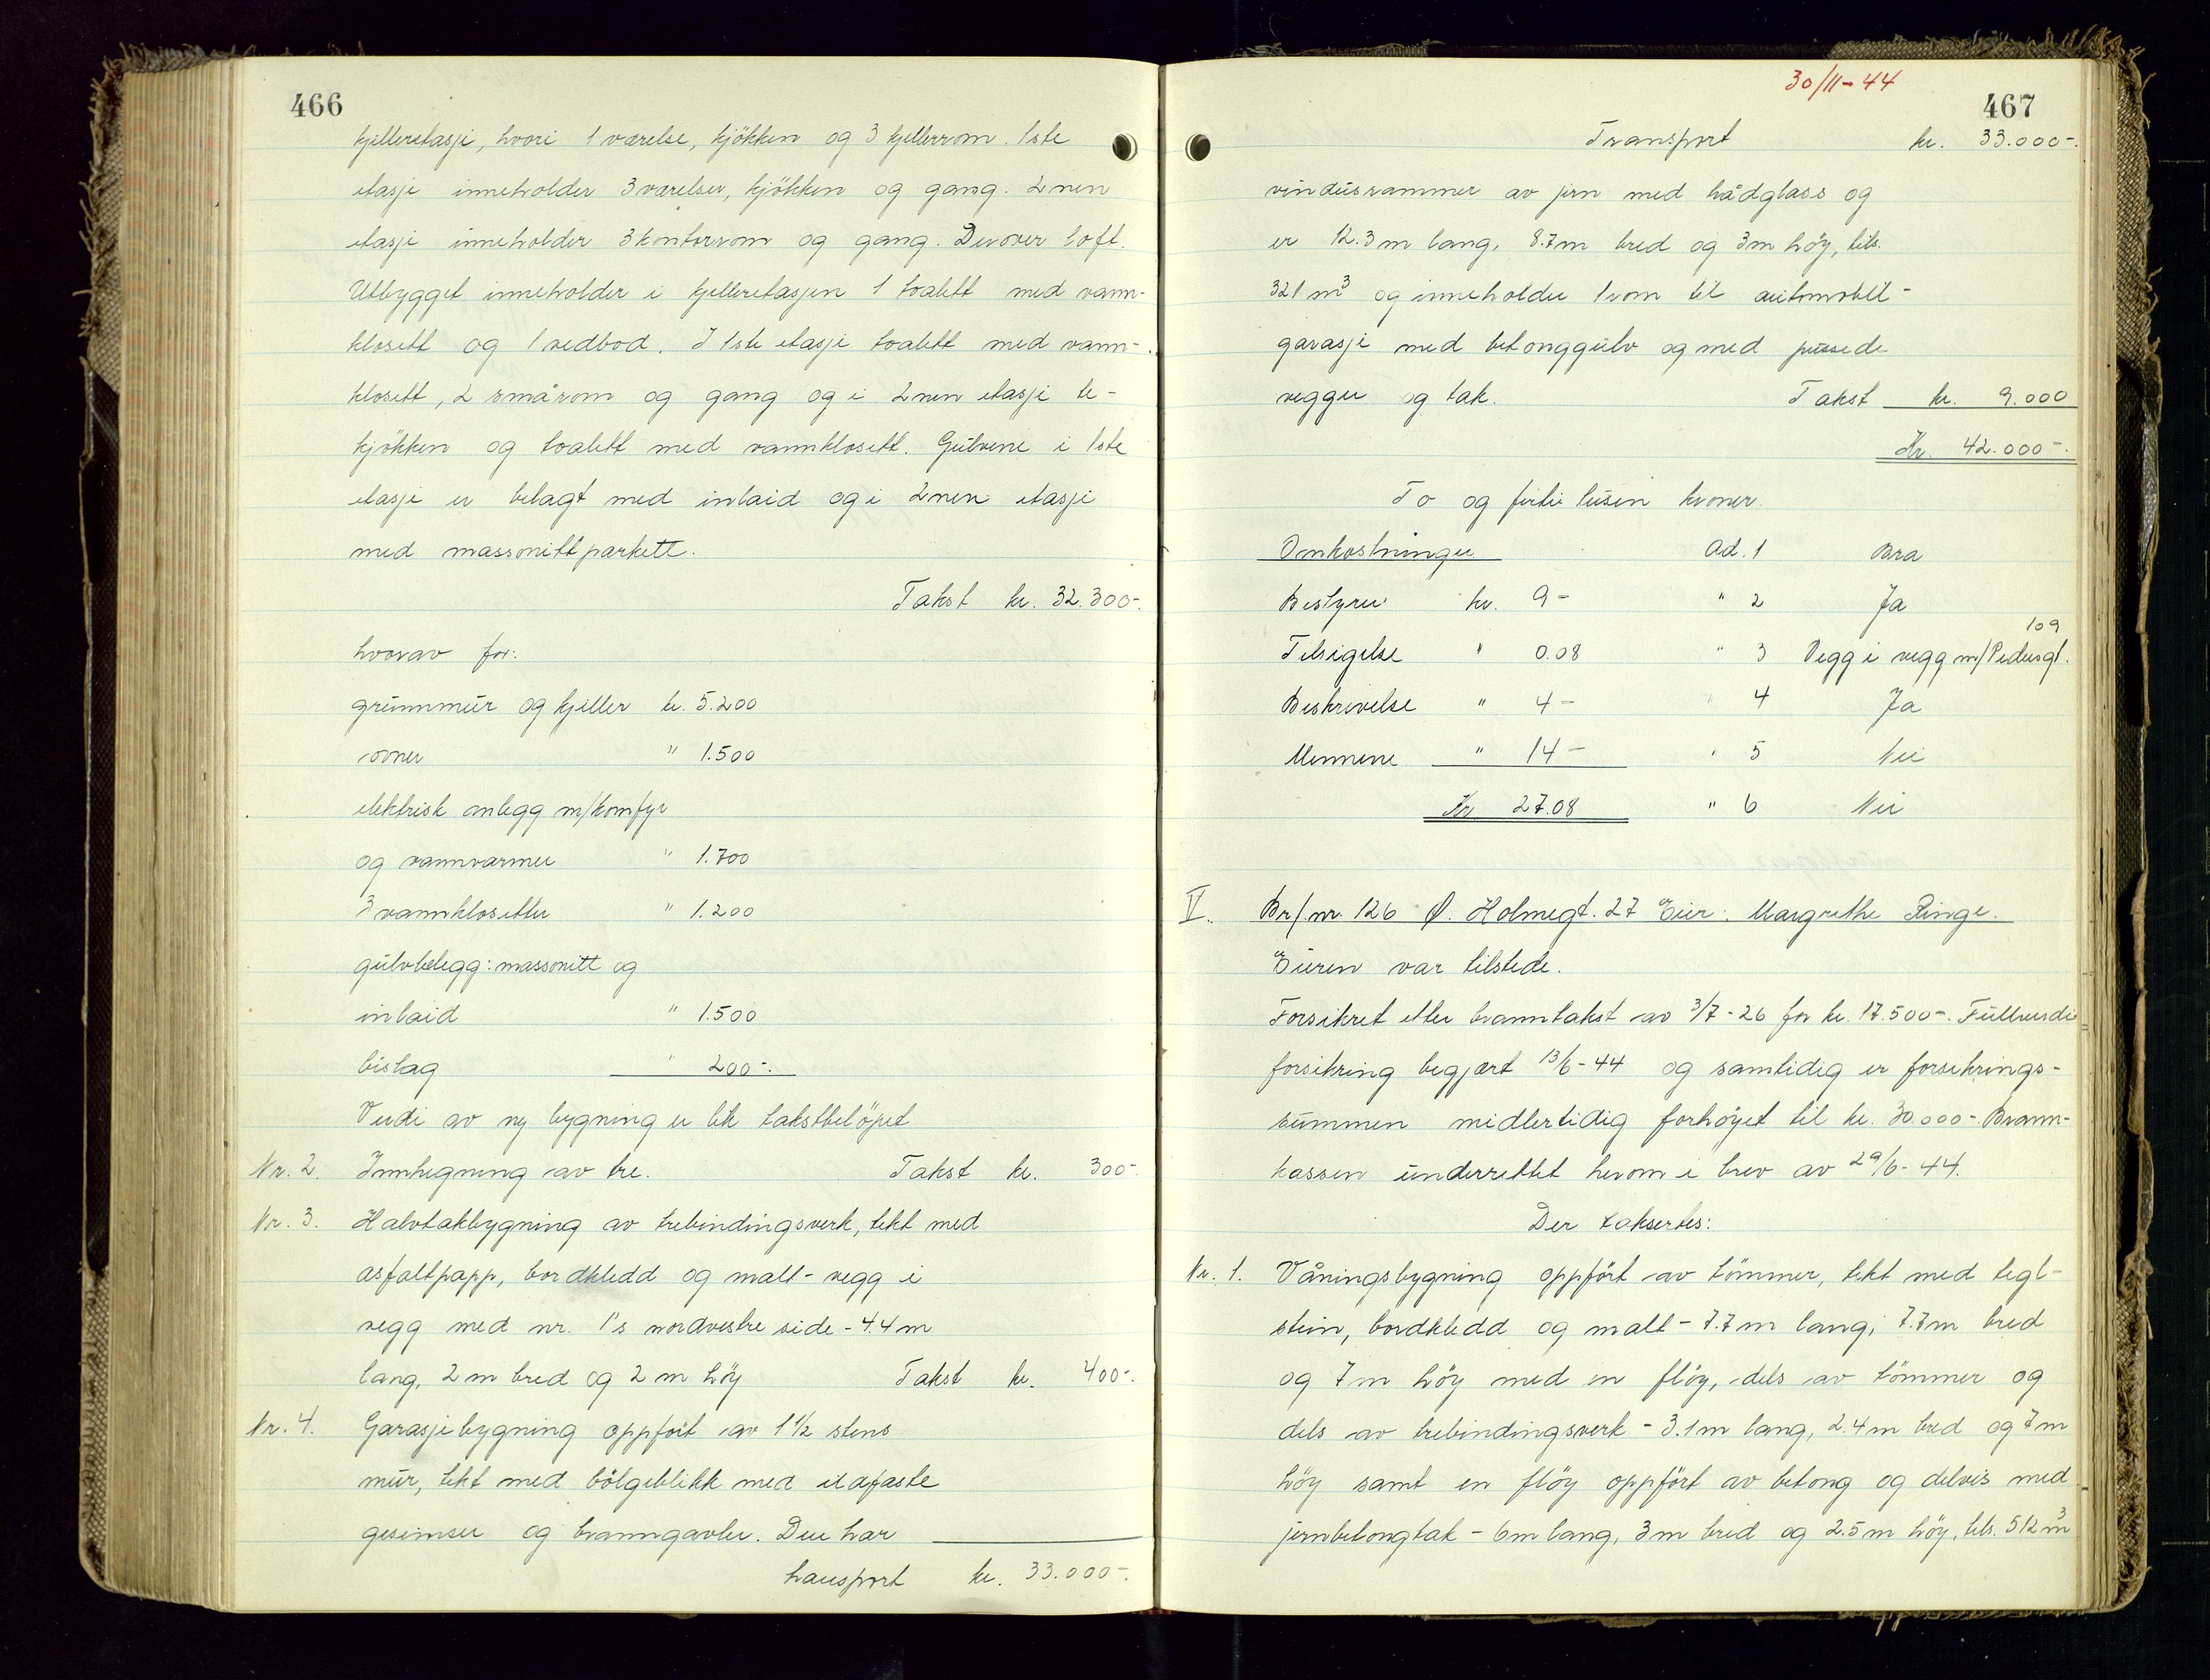 466
kjelleretasje, hvori 1 værelse, kjökken og 3 kjellerrom. 1ste
etasje inneholder 3 værelser, kjökken og gang. 2nen
etasje inneholder 3 kontorrom og gang. Derover loft.
Utbygget inneholder i kjelleretasjen 1 toalett med vann-
klosett og 1 vedbod. I 1ste etasje toalett med vann-
klosett, 2 smårom og gang og i 2nen etasje te-
kjökken og toalett med vannklosett. Gulvene i 1ste
etasje er belagt med inlaid og i 2nen etasje
med massonittparkett.
Takst kr. 32.300-.
hvorav for:
grunnmur og kjeller kr. 5.200
ovner " 1.500
elektrisk anlegg m/komfyr
og vannvarmer " 1.700
3 vannklosetter " 1.200
gulvbelegg: massonitt og
inlaid " 1.500
bislag " 200-.
Verdi av ny bygning er lik takstbelöpet
Nr. 2. Innhegning av tre. Takst kr. 300-.
Nr. 3. Halvtakbygning av trebindingsverk, tekt med
asfaltpapp, bordkledd og malt - vegg i
vegg med nr. 1's nordvestre side - 4.4 m
lang, 2 m bred og 2 m höy Takst kr. 400-.
Nr. 4. Garasjebygning oppfört av 1 1/2 stens
mur, tekt med bölgeblikk med ildfaste
gesimser og branngavler. Den har
transport kr. 33.000-.
30/11-44
467
Transport kr. 33.000-.
vindusrammer av jern med trådglass og
er 12.3 m lang, 8.7 m bred og 3 m höy, tils.
321 m3 og inneholder 1 rom til automobil-
garasje med betonggulv og med pussede
vegger og tak. Takst kr. 9.000
Kr. 42.000-.
To og førti tusen kroner.
Omkostninger Ad. 1 Bra
Bestyrer kr. 9- " 2 Ja
109
Tilsigelse " 0.08 " 3 Vegg i vegg m/Pedersgt.
Beskrivelse " 4- " 4 Ja
Mennene " 14- " 5 Nei
Kr 27.08 " 6 Nei
V. Br/.nr. 126 Ø. Holmegt. 27 Eier: Margrethe Ringe.
Eieren var tilstede.
Forsikret etter branntakst av 3/7-26 for kr. 17.500-. Fullverdi
forsikring begjært 13/6-44 og samtidig er forsikrings-
summen midlertidig forhöyet til kr. 30.000-. Brann-
kassen underrettet herom i brev av 29/6-44.
Der takseres:
Nr. 1. Våningsbygning oppfört av tömmer, tekt med tegl-
stein, bordkledd og malt - 7.7 m lang, 7.7 m bred
og 7 m höy med en flöy, dels av tömmer og
dels av trebindingsverk - 3.1 m lang, 2.4 m bred og 7 m
höy samt en flöy oppfört av betong og delvis med
jernbetongtak - 6 m lang, 3 m bred og 2.5 m höy, tils. 512 m3